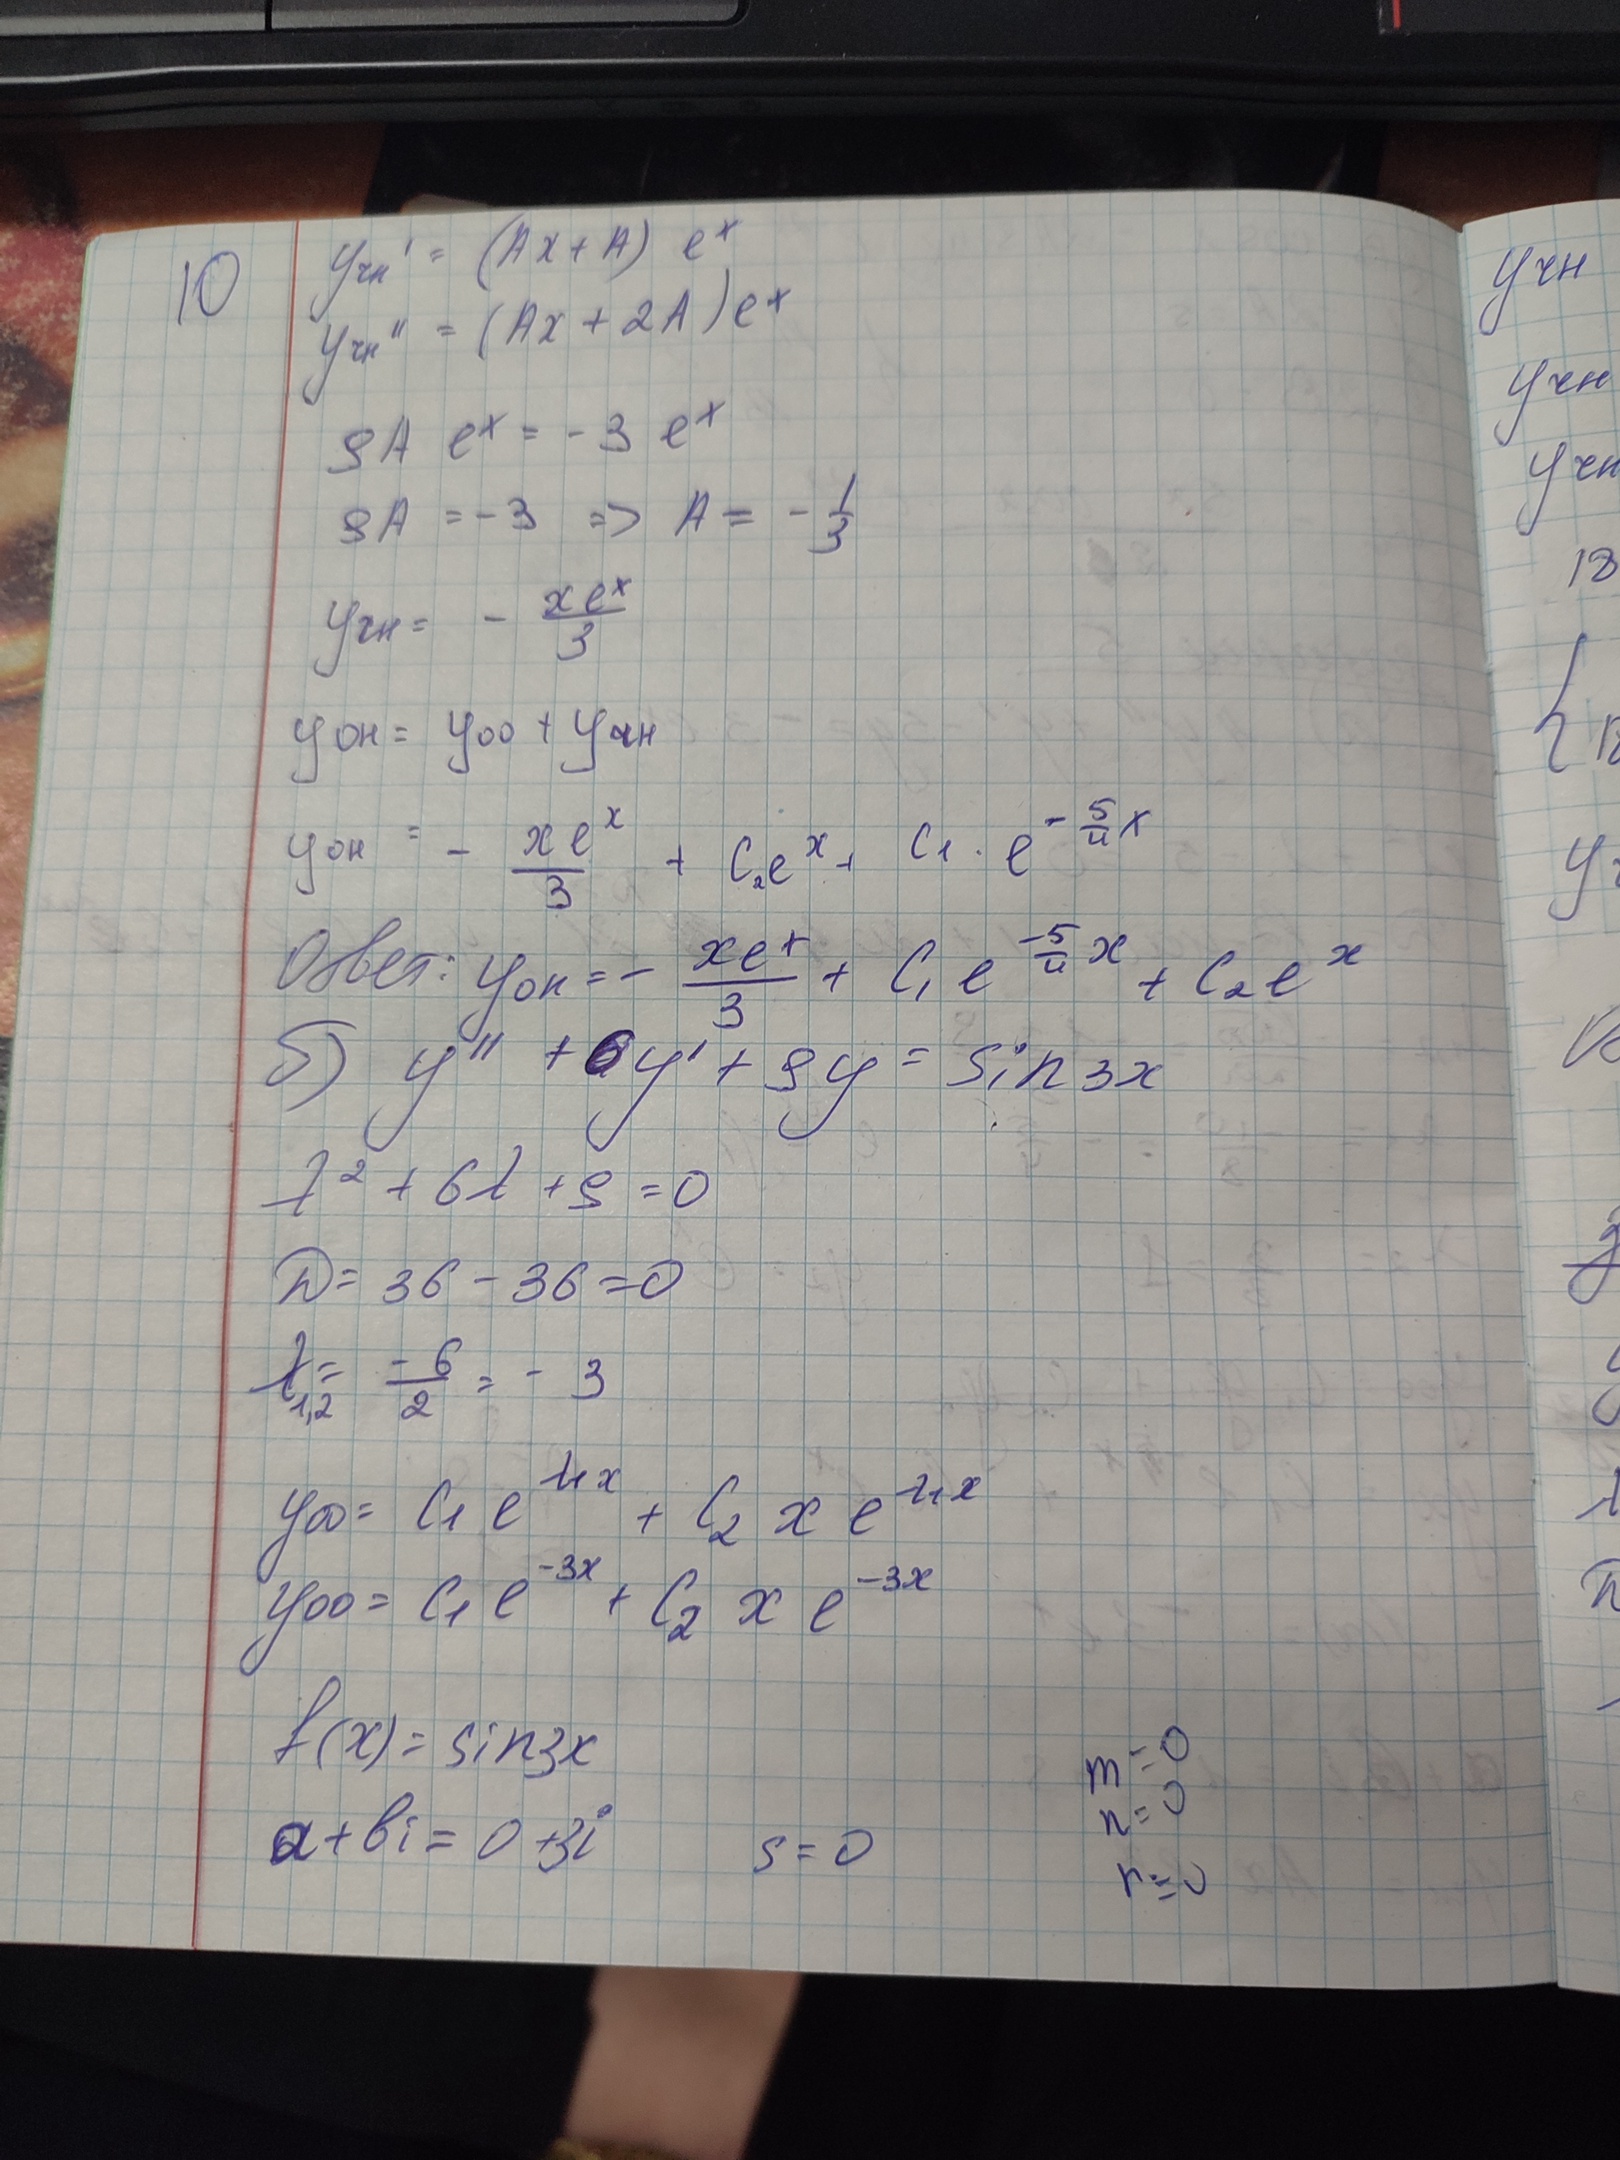 10
yчн' = (Ax + A) e^x
yчн'' = (Ax + 2A) e^x
9A e^x = -3 e^x
9A = -3 => A = -1/3
yчн = - xe^x/3
yон = yоо + yчн
yон = - xe^x/3 + C₂e^x + C₁ · e^(-5/4 x)
Ответ: yон = - xe^x/3 + C₁ e^(-5/4 x) + C₂ e^x
б) y'' + 6y' + 9y = sin 3x
λ² + 6λ + 9 = 0
D = 36 - 36 = 0
λ₁,₂ = -6/2 = -3
yоо = C₁ e^(λ₁x) + C₂ x e^(λ₁x)
yоо = C₁ e^(-3x) + C₂ x e^(-3x)
f(x) = sin3x
a + bi = 0 + 3i s = 0
m = 0
n = 0
r = 0
yчн
yчн
yчн
18